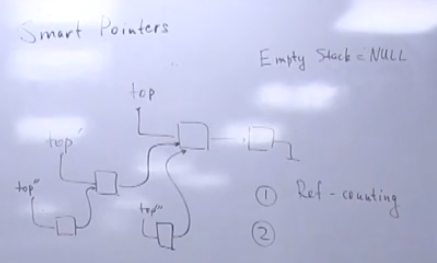 Smart Pointers
Empty Stack = NULL
top
top'
top"
top'"
① Ref-counting
②